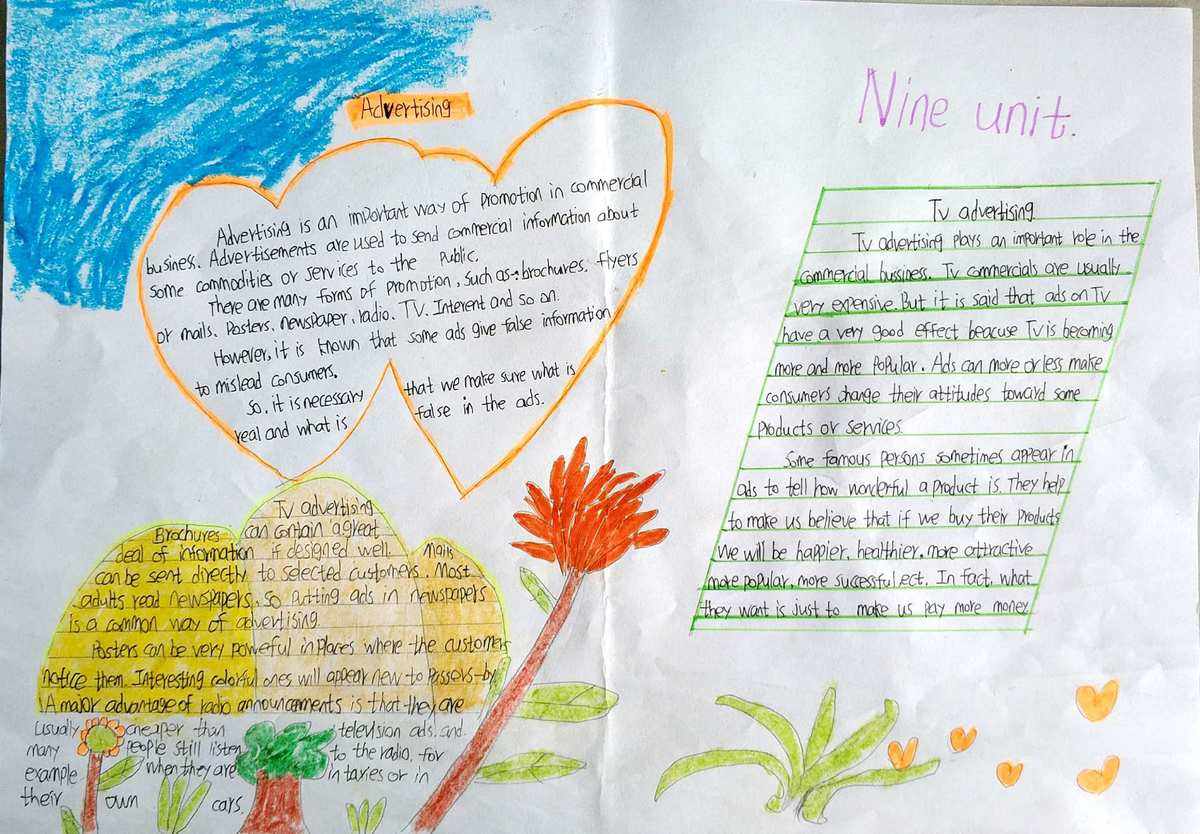 Advertising
Advertising is an important way of promotion in commercial
business. Advertisements are used to send commercial information about
some commodities or services to the public.
There are many forms of promotion, such as: brochures. flyers
or mails. Posters, newspaper, radio. TV. Interent and so on.
However, it is known that some ads give false information
to mislead consumers.
So, it is necessary that we make sure what is
real and what is false in the ads.
Tv advertising
Brochures can contain a great
deal of information if designed well. Mails
can be sent directly to selected customers. Most
adults read newspapers, so putting ads in newspapers
is a common way of advertising.
Posters can be very powerful in places where the customers
notice them. Interesting colorful ones will appear new to Passers-by.
A major advantage of radio announcements is that they are
usually cheaper than television ads. and
many people still listen to the radio. for
example when they are in taxies or in
their own cars.
Nine unit.
Tv advertising
Tv advertising plays an important role in the
commercial bussiness. Tv commercials are usually
very expensive. But it is said that ads on Tv
have a very good effect beacuse Tv is becoming
more and more popular. Ads can more or less make
consumers change their attitudes toward some
products or services.
Some famous persons sometimes appear in
ads to tell how wonderful a product is. They help
to make us believe that if we buy their products
we will be happier. healthier. more attractive
more popular. more successful ect. In fact, what
they want is just to make us pay more money